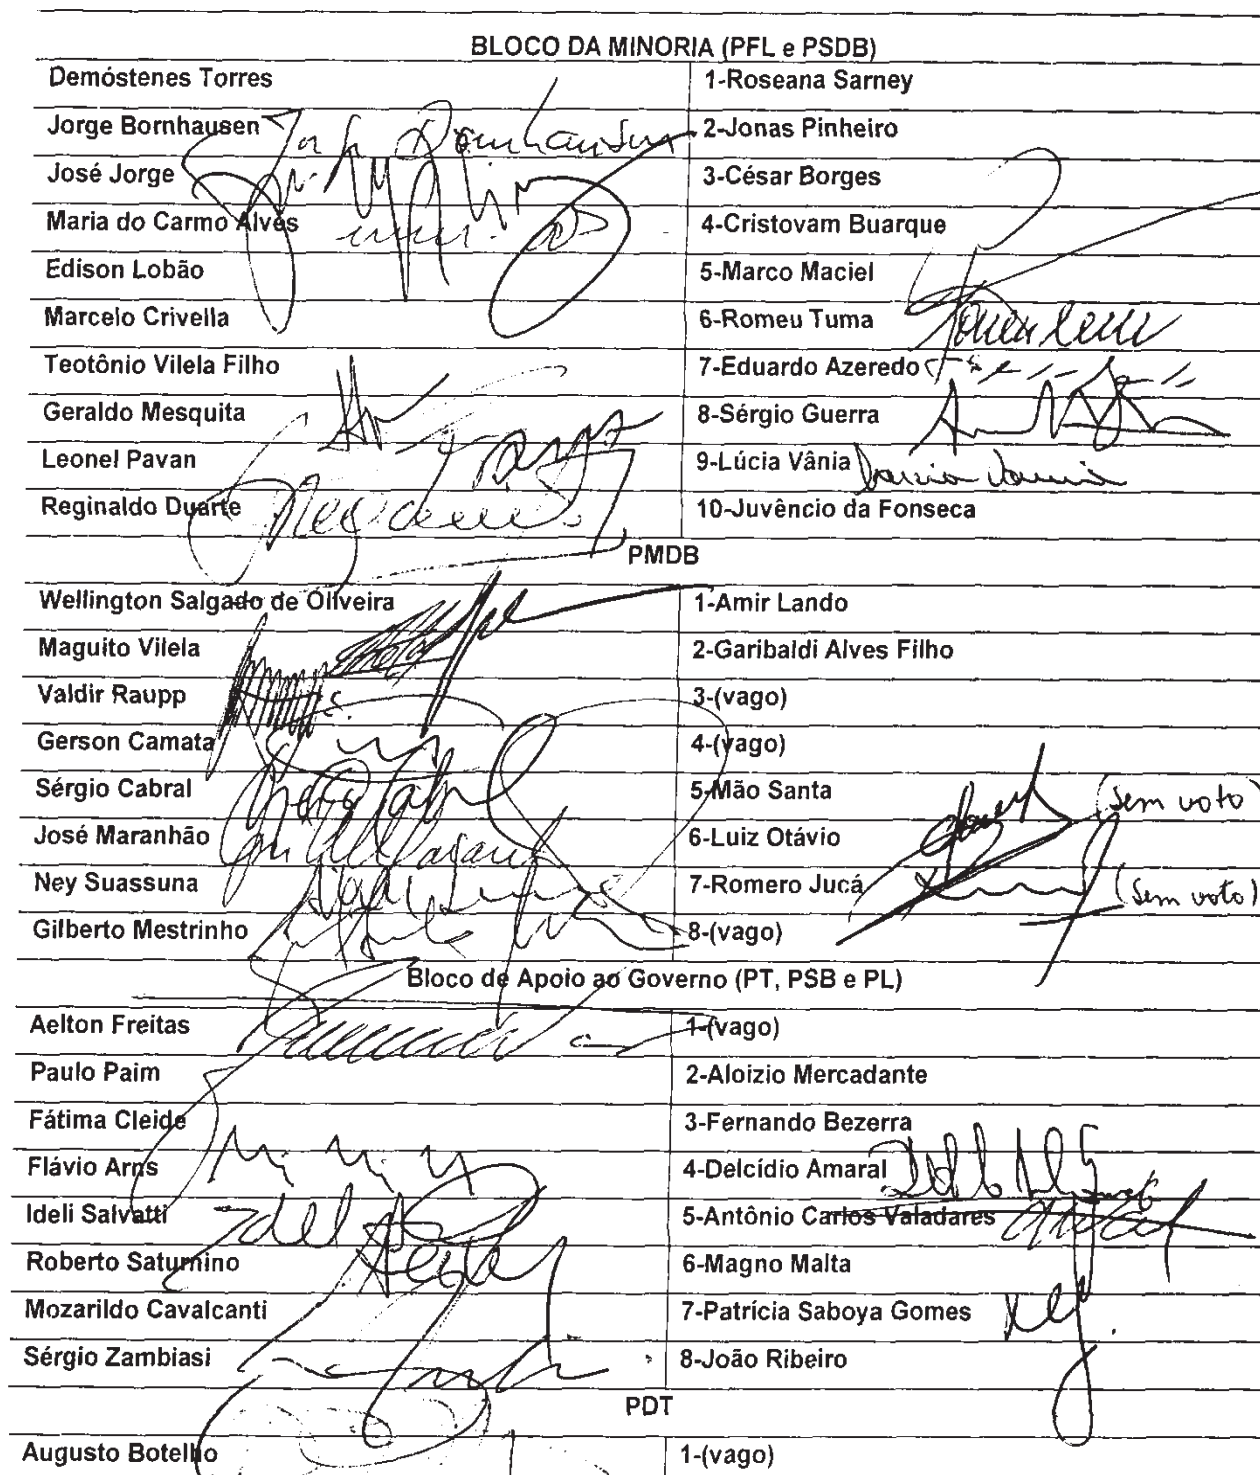 BLOCO DA MINORIA (PFL e PSDB)
Demóstenes Torres 1-Roseana Sarney
Jorge Bornhausen Jorge Bornhausen 2-Jonas Pinheiro
José Jorge 3-César Borges
Maria do Carmo Alves 4-Cristovam Buarque
Edison Lobão 5-Marco Maciel
Marcelo Crivella 6-Romeu Tuma
Teotônio Vilela Filho 7-Eduardo Azeredo
Geraldo Mesquita 8-Sérgio Guerra
Leonel Pavan 9-Lúcia Vânia Lucia Vania
Reginaldo Duarte 10-Juvêncio da Fonseca
PMDB
Wellington Salgado de Oliveira 1-Amir Lando
Maguito Vilela 2-Garibaldi Alves Filho
Valdir Raupp 3-(vago)
Gerson Camata 4-(vago)
Sérgio Cabral 5-Mão Santa (sem voto)
José Maranhão 6-Luiz Otávio
Ney Suassuna 7-Romero Jucá (sem voto)
Gilberto Mestrinho 8-(vago)
Bloco de Apoio ao Governo (PT, PSB e PL)
Aelton Freitas 1-(vago)
Paulo Paim 2-Aloizio Mercadante
Fátima Cleide 3-Fernando Bezerra
Flávio Arns 4-Delcídio Amaral
Ideli Salvatti 5-Antônio Carlos Valadares
Roberto Saturnino 6-Magno Malta
Mozarildo Cavalcanti 7-Patrícia Saboya Gomes
Sérgio Zambiasi 8-João Ribeiro
PDT
Augusto Botelho 1-(vago)